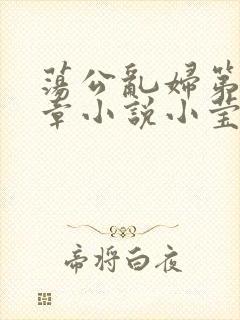 蕩公亂婦第
章小說小莹
帝將白夜